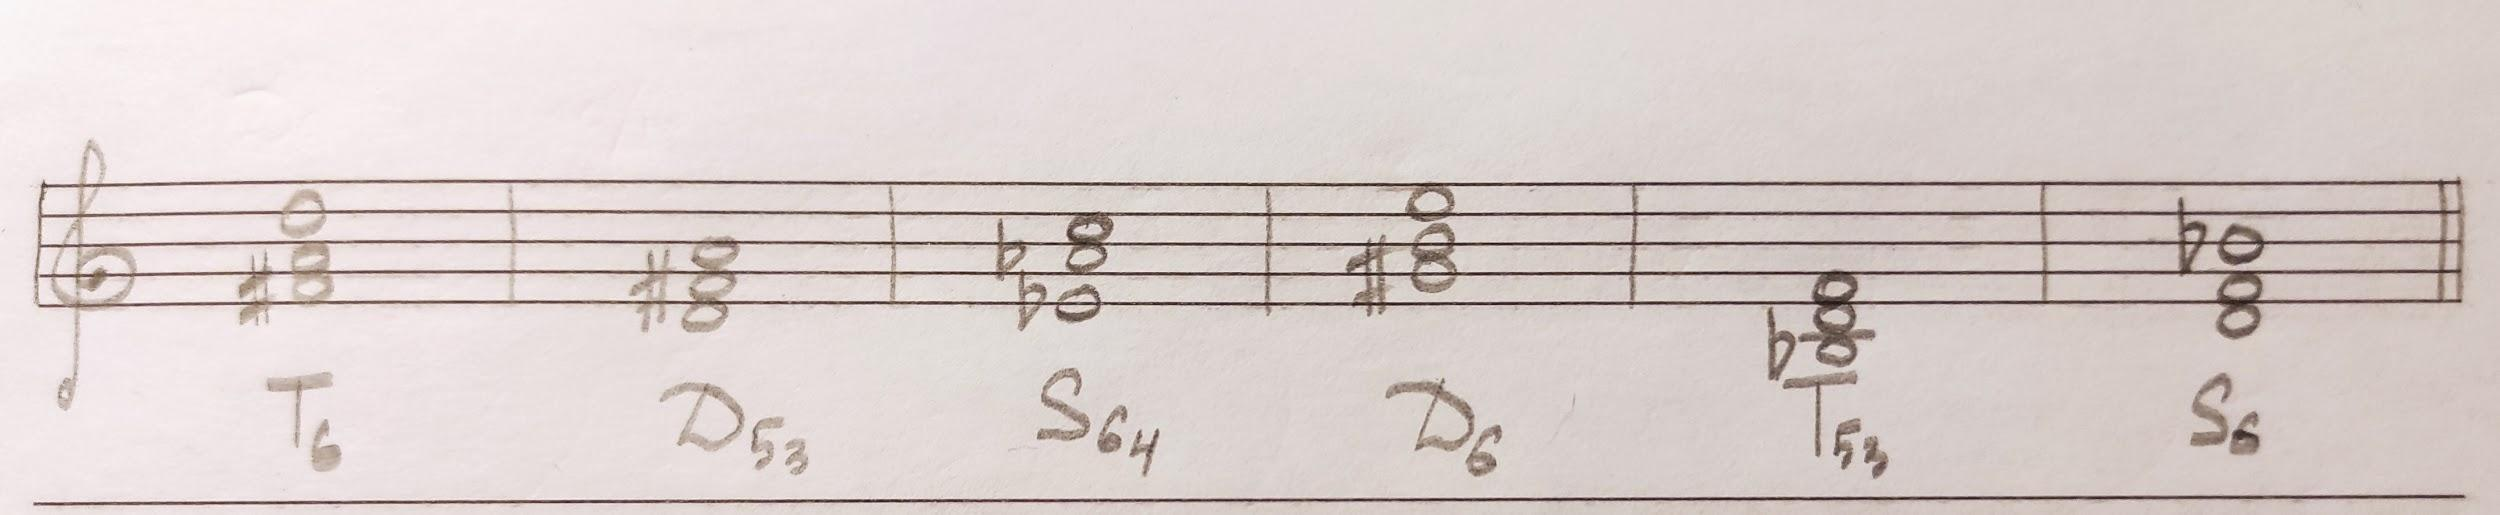 T6 D53 S64 D6 T53 S6